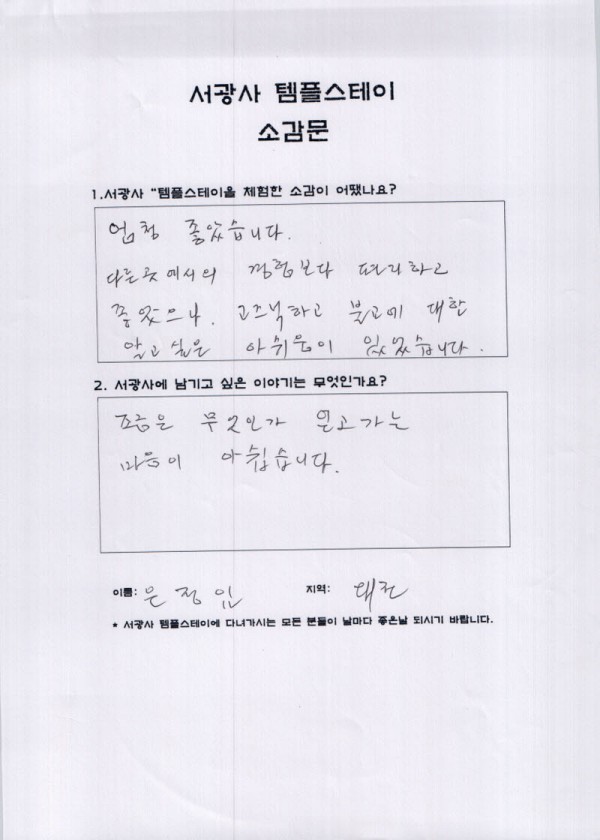 서광사 템플스테이
소감문
1.서광사 "템플스테이을 체험한 소감이 어땠나요?
엄청 좋았습니다.
다른곳에서의 경험보다 편리하고
좋았으나. 고즈넉하고 불교에 대한
알고싶은 아쉬움이 있었습니다.
2. 서광사에 남기고 싶은 이야기는 무엇인가요?
조금은 무엇인가 잃고가는
마음이 아쉽습니다.
이름: 은정임 지역: 대전
* 서광사 템플스테이에 다녀가시는 모든 분들이 날마다 좋은날 되시기 바랍니다.